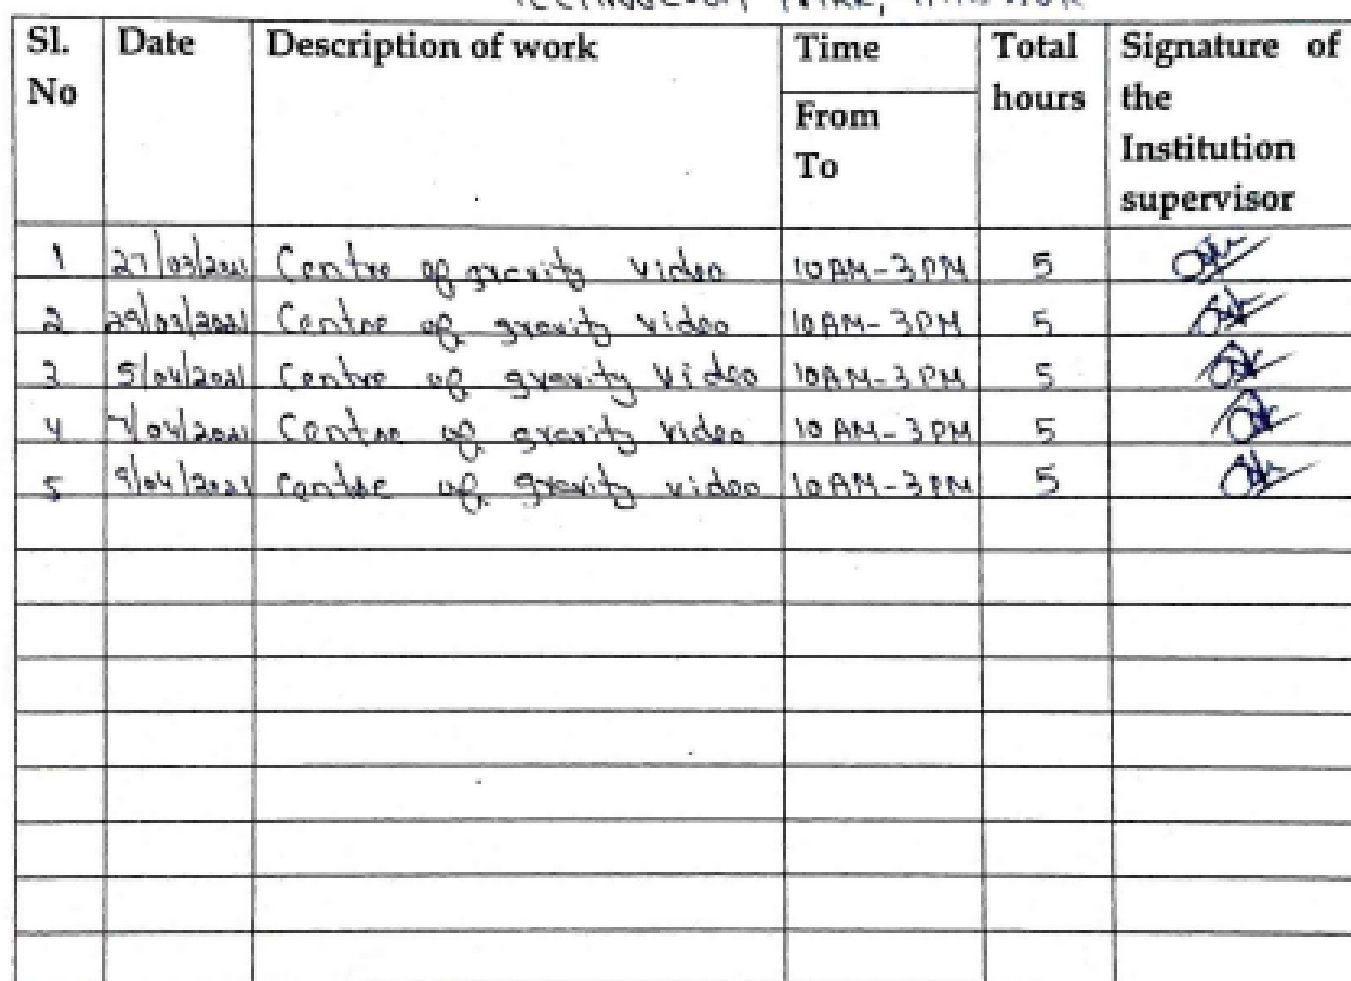 Sl. No Date Description of work Time From To Total hours Signature of the Institution supervisor
1 27/03/2021 Centre of gravity video 10AM-3PM 5
2 29/03/2021 Centre of gravity video 10AM-3PM 5
3 5/04/2021 Centre of gravity video 10AM-3PM 5
4 7/04/2021 Centre of gravity video 10AM-3PM 5
5 9/04/2021 Centre of gravity video 10AM-3PM 5